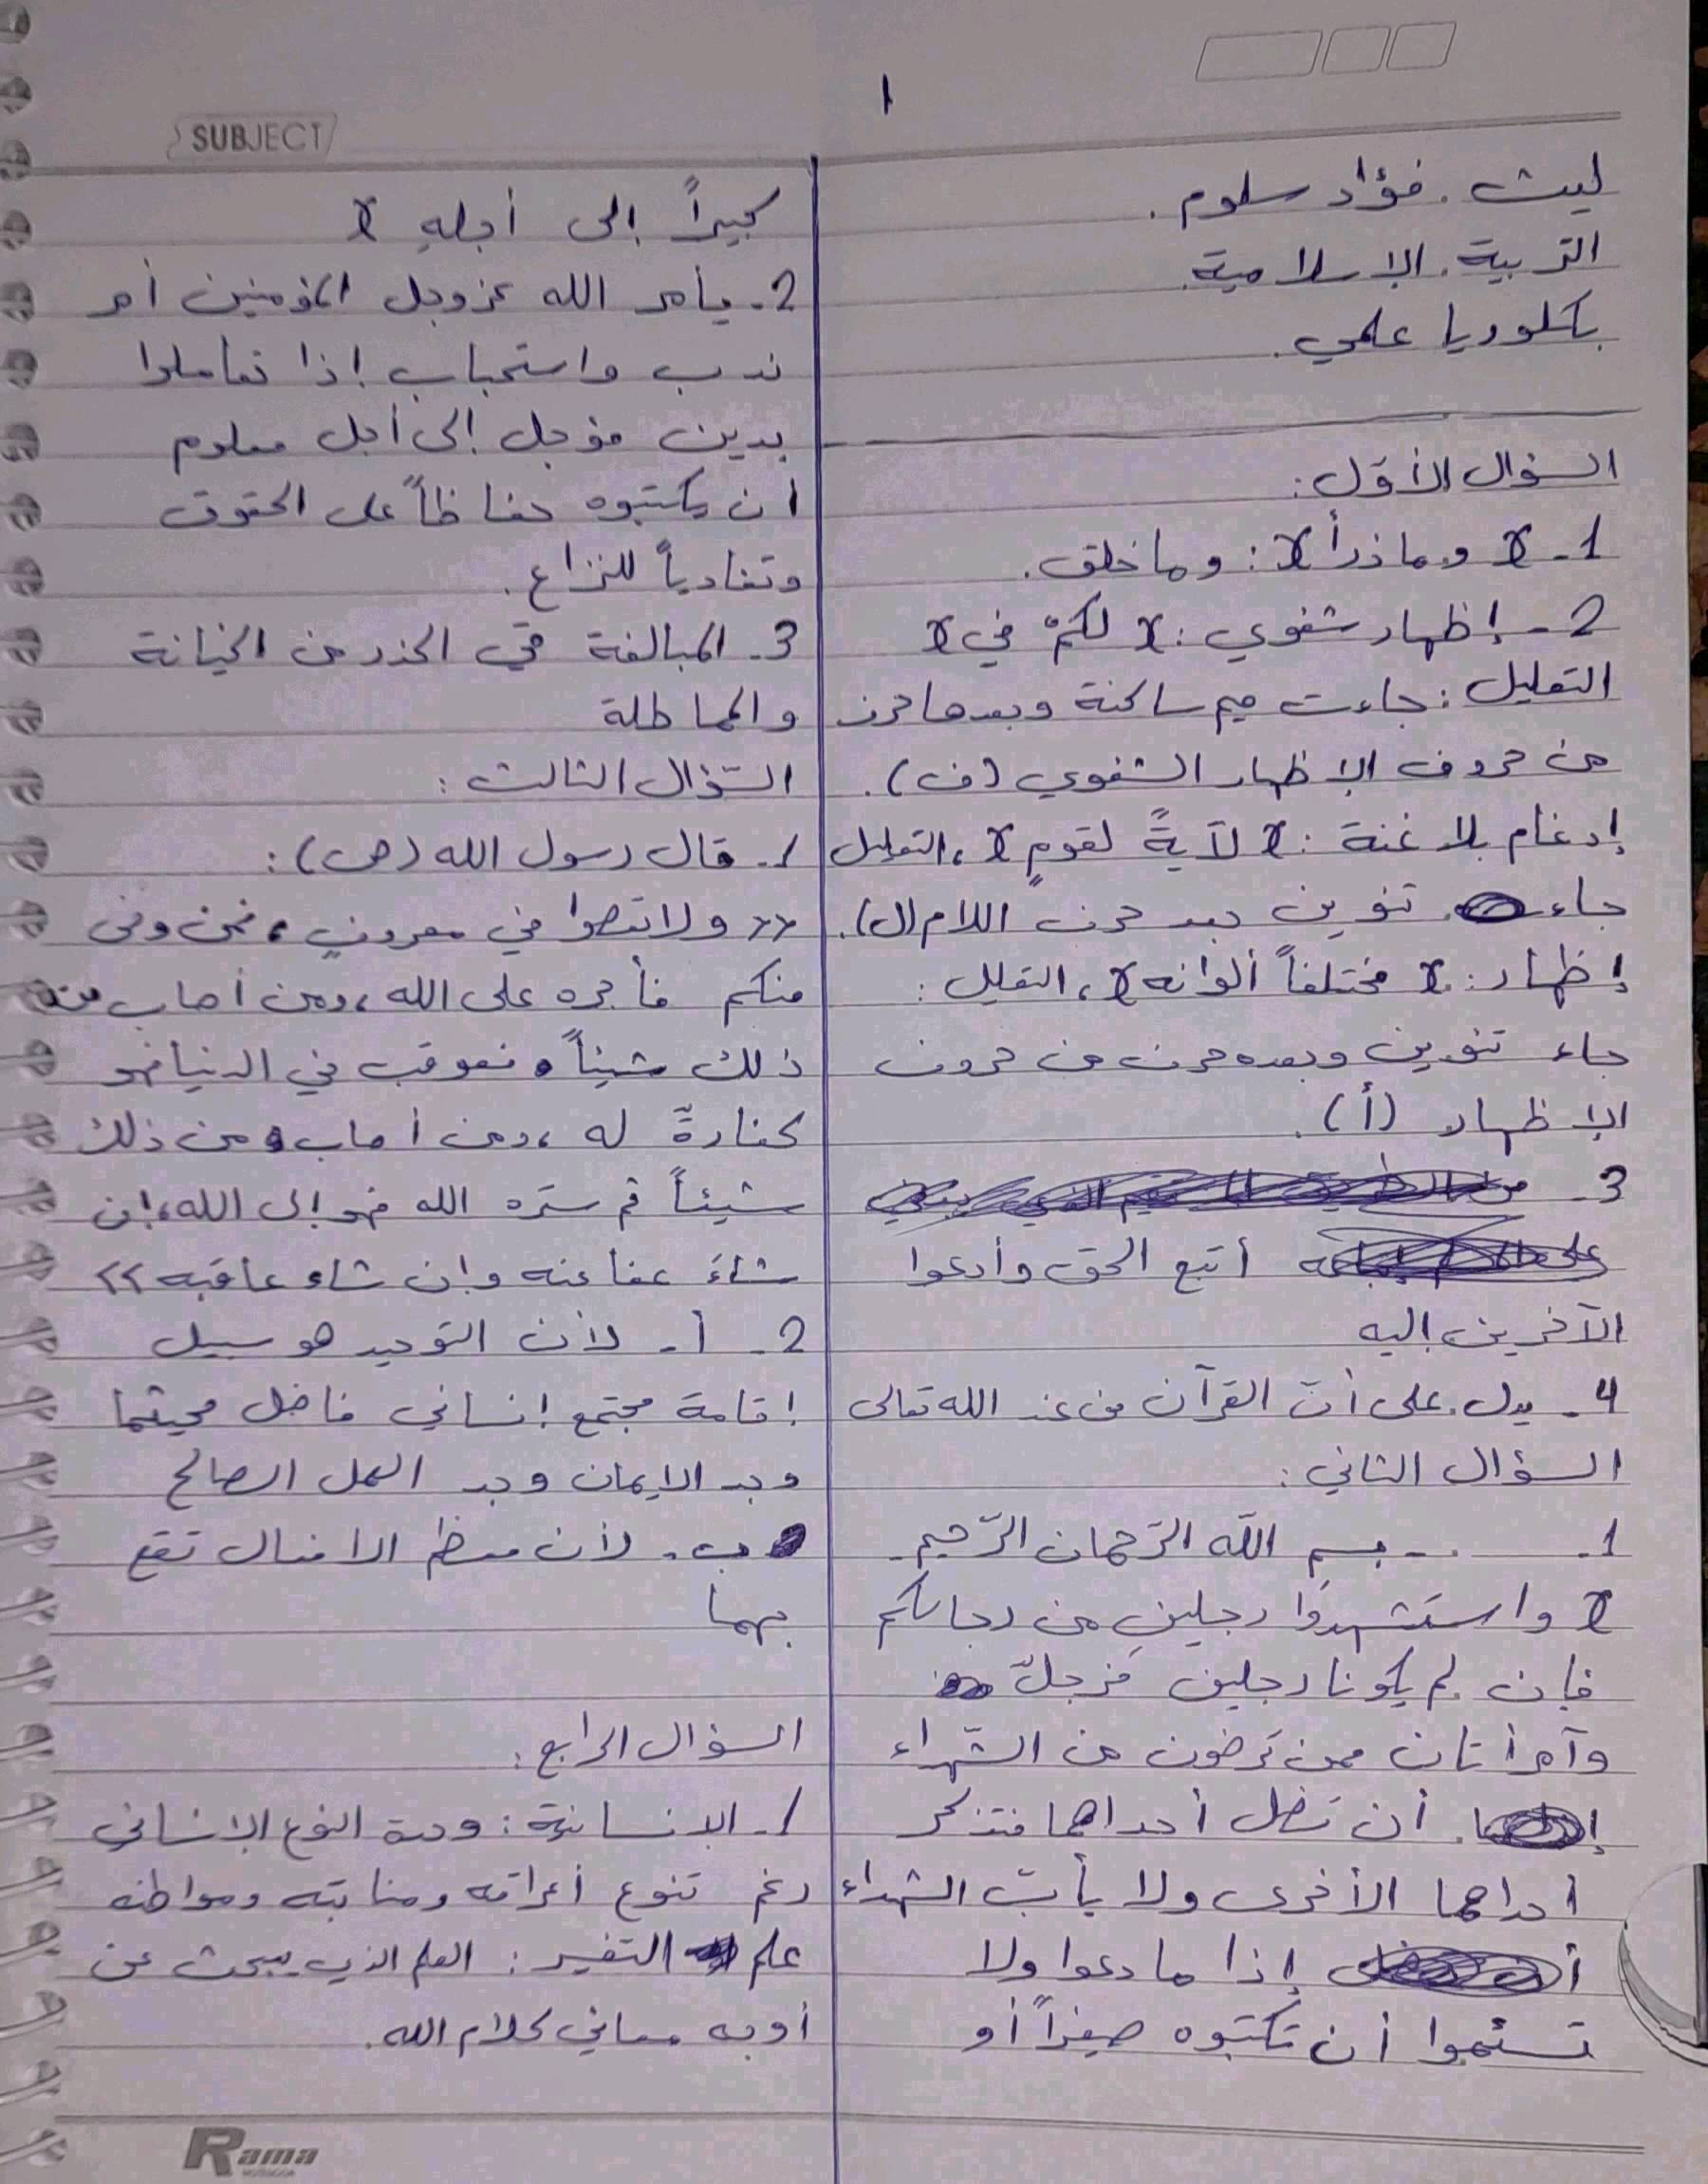 ١
SUBJECT
ليث . فؤاد سلوم .
التربية . الإسلامية .
بكلوريا علمي .
السؤال الأوّل :
1- لا وما ذرأ لا : وما خلق .
2- إظهار شفوي : لا لكمْ في لا
التعليل : جاءت ميم ساكنة وبعدها حرف
من حروف الإظهار الشفوي (ف) .
إدغام بلا غنة : لا لآيةً لقومٍ لا ، التعليل
جاء تنوين بعد حرف اللام (ل) .
إظهار : لا مختلفاً ألوانه لا ، التعليل :
جاء تنوين وبعده حرف من حروف
الإظهار (أ) .
3-
أتبع الحق وأدعوا
الآخرين إليه
4- يدل . على أنّ القرآن من عند الله تعالى
السؤال الثاني :
1- بسم الله الرّحمان الرّحيم .
لا واستشهدوا رجلينِ من رجالكم
فإن لم يكونا رجلين فرجلٌ
وآمرأتان ممن تَرضون من الشّهداء
أن تضل أحداهما فتذكر
أحداهما الأخرى ولا يأبَ الشهداء
إذا ما دعوا ولا
تسئموا أن تكتبوه صغيراً أو
كبيراً إلى أجلهِ لا
2- يأمر الله عزوجل المؤمنين أمر
ندب واستحباب إذا تعاملوا
بدين مؤجل إلى أجل معلوم
أن يكتبوه حفاظاً على الحقوق
وتفادياً للنزاع .
3- المبالغة في الحذر من الخيانة
والمماطلة
السّؤال الثالث :
1- قال رسول الله (ص) :
>> ولا تعصوا في معروفٍ ، فمن وفى
منكم فأجره على الله ، ومن أصاب من
ذلك شيئاً فعوقب في الدنيا فهو
كفارةٌ له ، ومن أصاب من ذلك
شيئاً ثم ستره الله فهو إلى الله ، إن
شاءَ عفا عنه وإن شاء عاقبه <<
2- أ- لأن التوحيد هو سبيل
إقامة مجتمع إنساني فاضل فحيثما
وجد الإيمان وجد العمل الصالح
ب- لأن معظم الافعال تقع
بهما
السؤال الرابع :
1- الإنسانية : وحدة النوع الإنساني
رغم تنوع أعراقه ومنابته ومواطنه
علم التفسير : العلم الذي يبحث عن
أوجه معاني كلام الله .
Rama